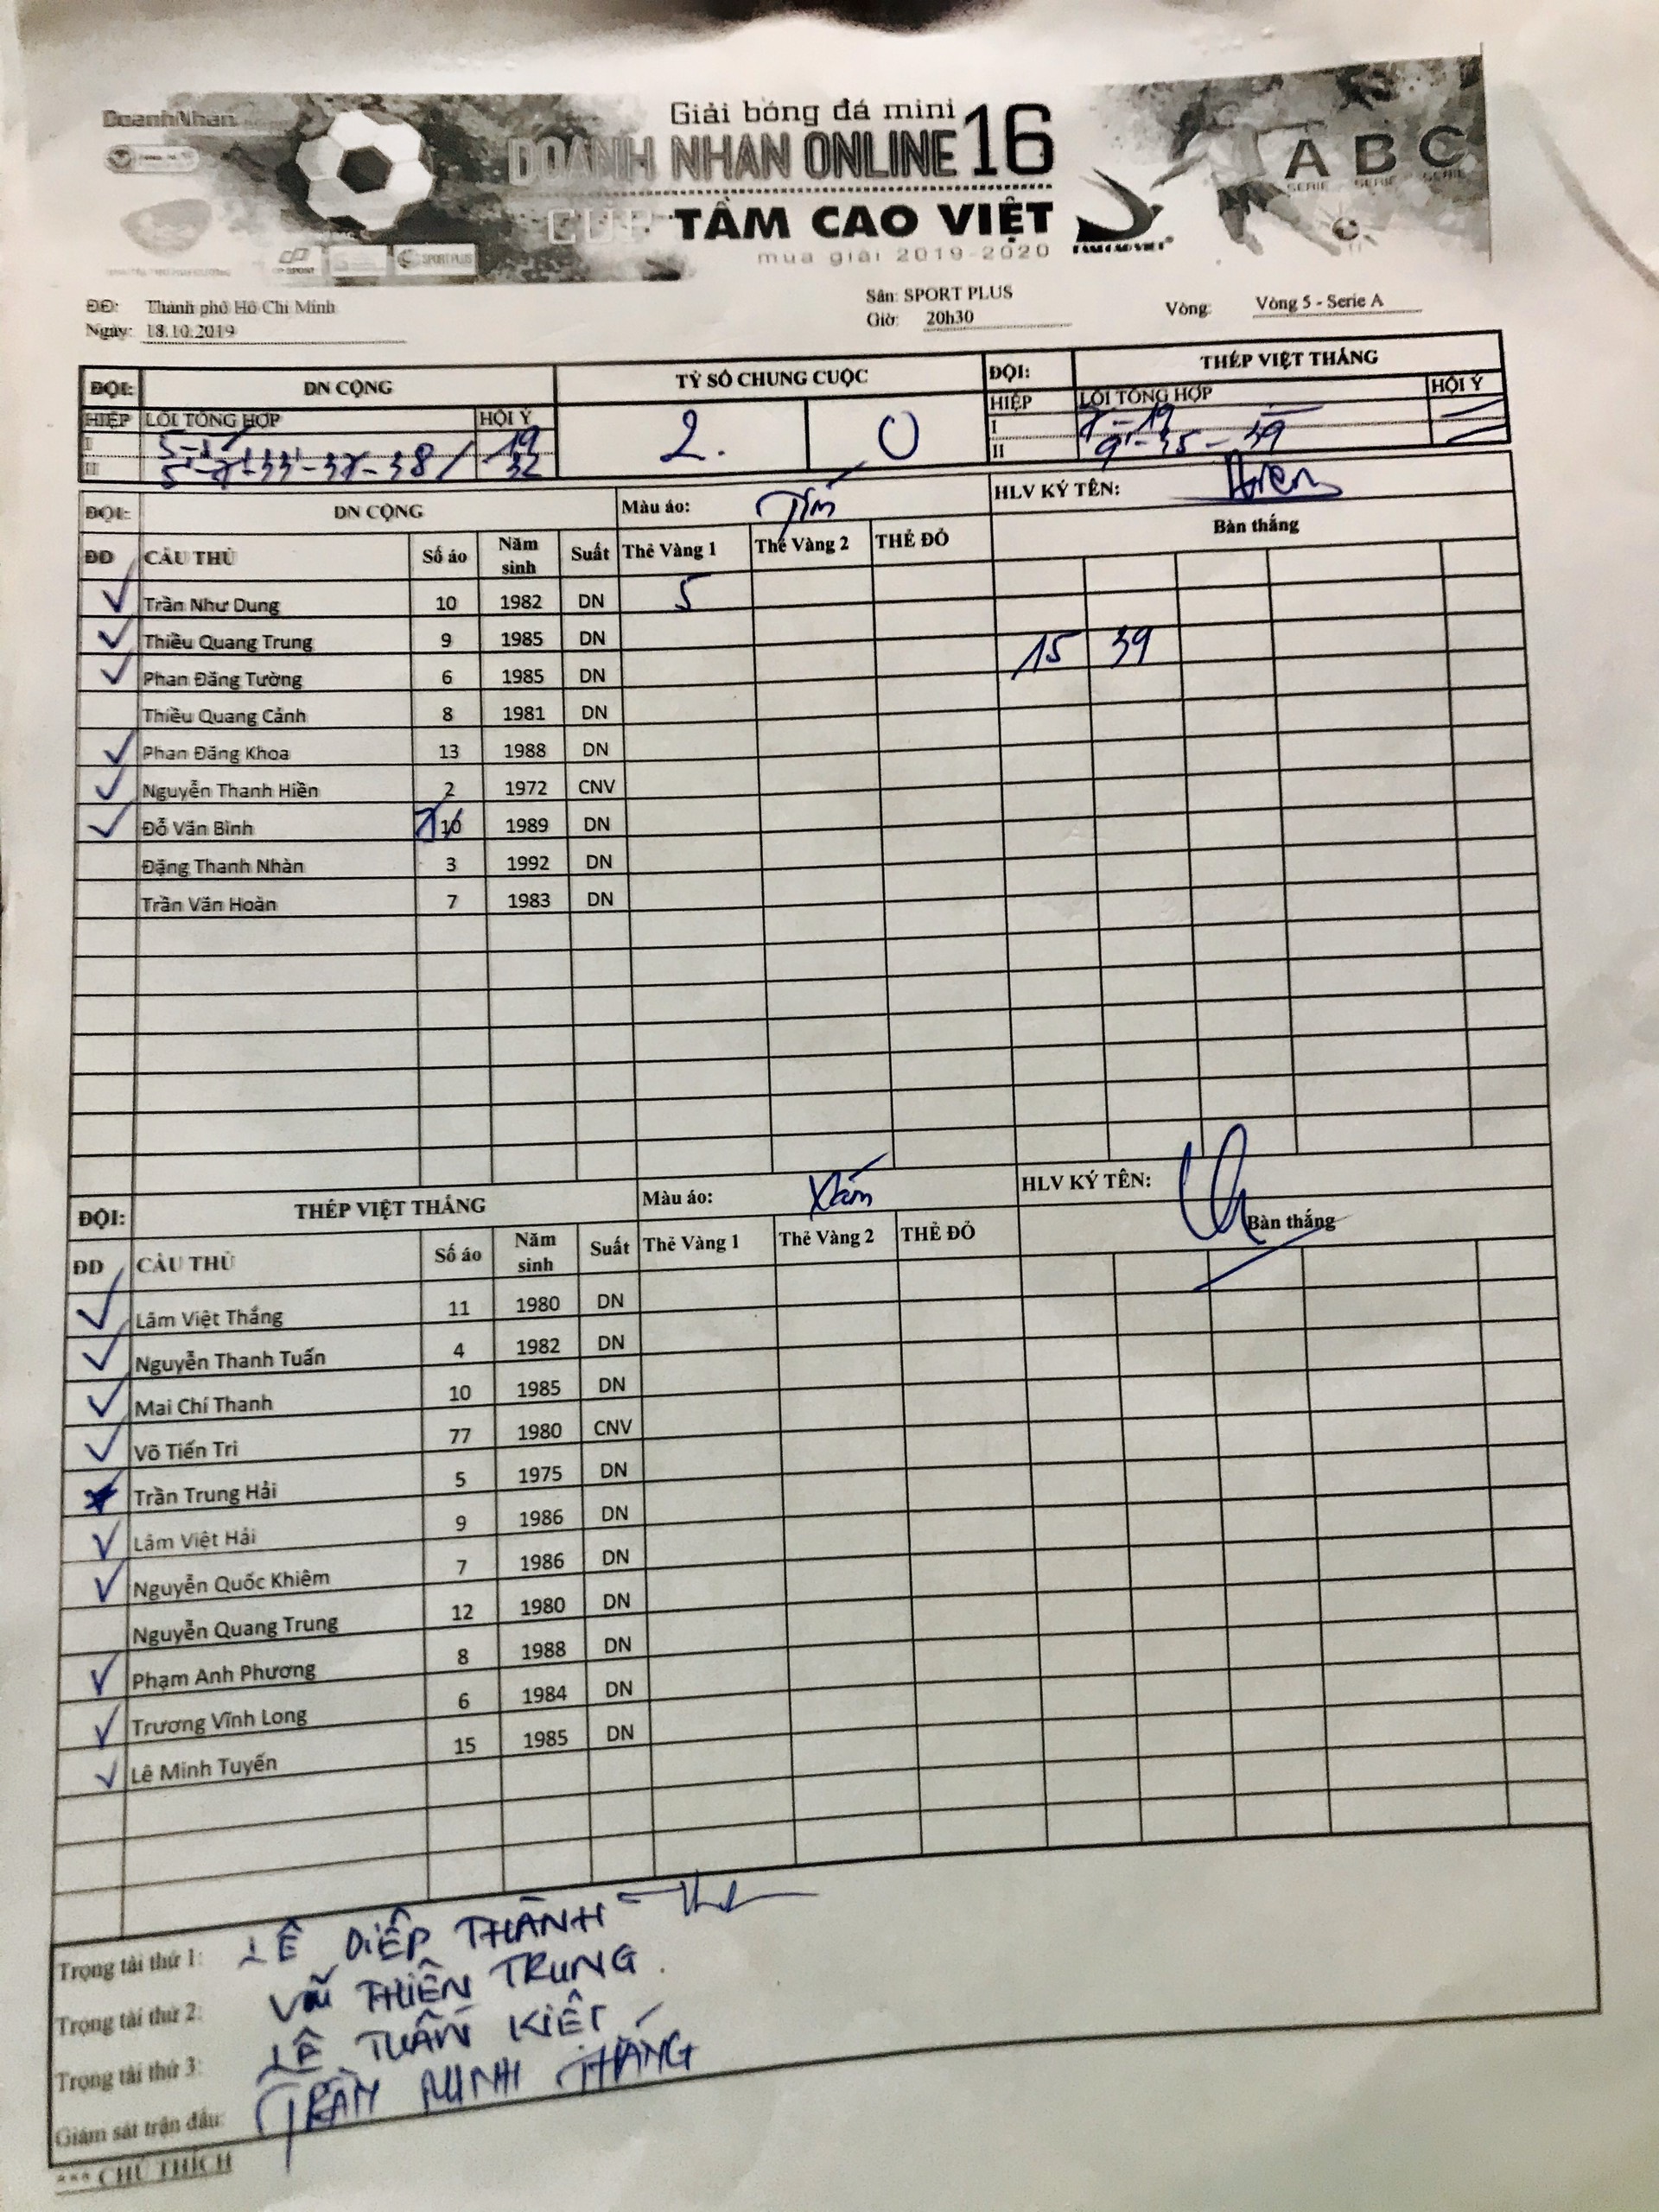 DoanhNhan
Giải bóng đá mini
DOANH NHAN ONLINE 16
CUP TẦM CAO VIỆT
mùa giải 2019-2020
TẦM CAO VIỆT
A B C
SERIE SERIE SERIE
SPORT PLUS
ĐĐ: Thành phố Hồ Chí Minh
Sân: SPORT PLUS
Ngày: 18.10.2019
Giờ: 20h30
Vòng: Vòng 5 - Serie A
ĐỘI: DN CỘNG TỶ SỐ CHUNG CUỘC ĐỘI: THÉP VIỆT THẮNG
HIỆP LỖI TỔNG HỢP HỘI Ý 2. 0 HIỆP LỖI TỔNG HỢP HỘI Ý
I 19 I
II 32 II 9'-35-39
ĐỘI: DN CỘNG Màu áo: Tím HLV KÝ TÊN: Hien
ĐD CẦU THỦ Số áo Năm sinh Suất Thẻ Vàng 1 Thẻ Vàng 2 THẺ ĐỎ Bàn thắng
Trần Như Dung 10 1982 DN 5
Thiều Quang Trung 9 1985 DN 15 39
Phan Đăng Tường 6 1985 DN
Thiều Quang Cảnh 8 1981 DN
Phan Đăng Khoa 13 1988 DN
Nguyễn Thanh Hiền 2 1972 CNV
Đỗ Văn Bình 16 1989 DN
Đặng Thanh Nhàn 3 1992 DN
Trần Văn Hoàn 7 1983 DN
ĐỘI: THÉP VIỆT THẮNG Màu áo: Xám HLV KÝ TÊN:
ĐD CẦU THỦ Số áo Năm sinh Suất Thẻ Vàng 1 Thẻ Vàng 2 THẺ ĐỎ Bàn thắng
Lâm Việt Thắng 11 1980 DN
Nguyễn Thanh Tuấn 4 1982 DN
Mai Chí Thanh 10 1985 DN
Võ Tiến Tri 77 1980 CNV
Trần Trung Hải 5 1975 DN
Lâm Việt Hải 9 1986 DN
Nguyễn Quốc Khiêm 7 1986 DN
Nguyễn Quang Trung 12 1980 DN
Phạm Anh Phương 8 1988 DN
Trương Vĩnh Long 6 1984 DN
Lê Minh Tuyến 15 1985 DN
Trọng tài thứ 1: LÊ DIỆP THÀNH
Trọng tài thứ 2: VŨ THIÊN TRUNG.
Trọng tài thứ 3: LÊ TUẤN KIỆT
Giám sát trận đấu: TRẦN MINH THẮNG
*** CHÚ THÍCH